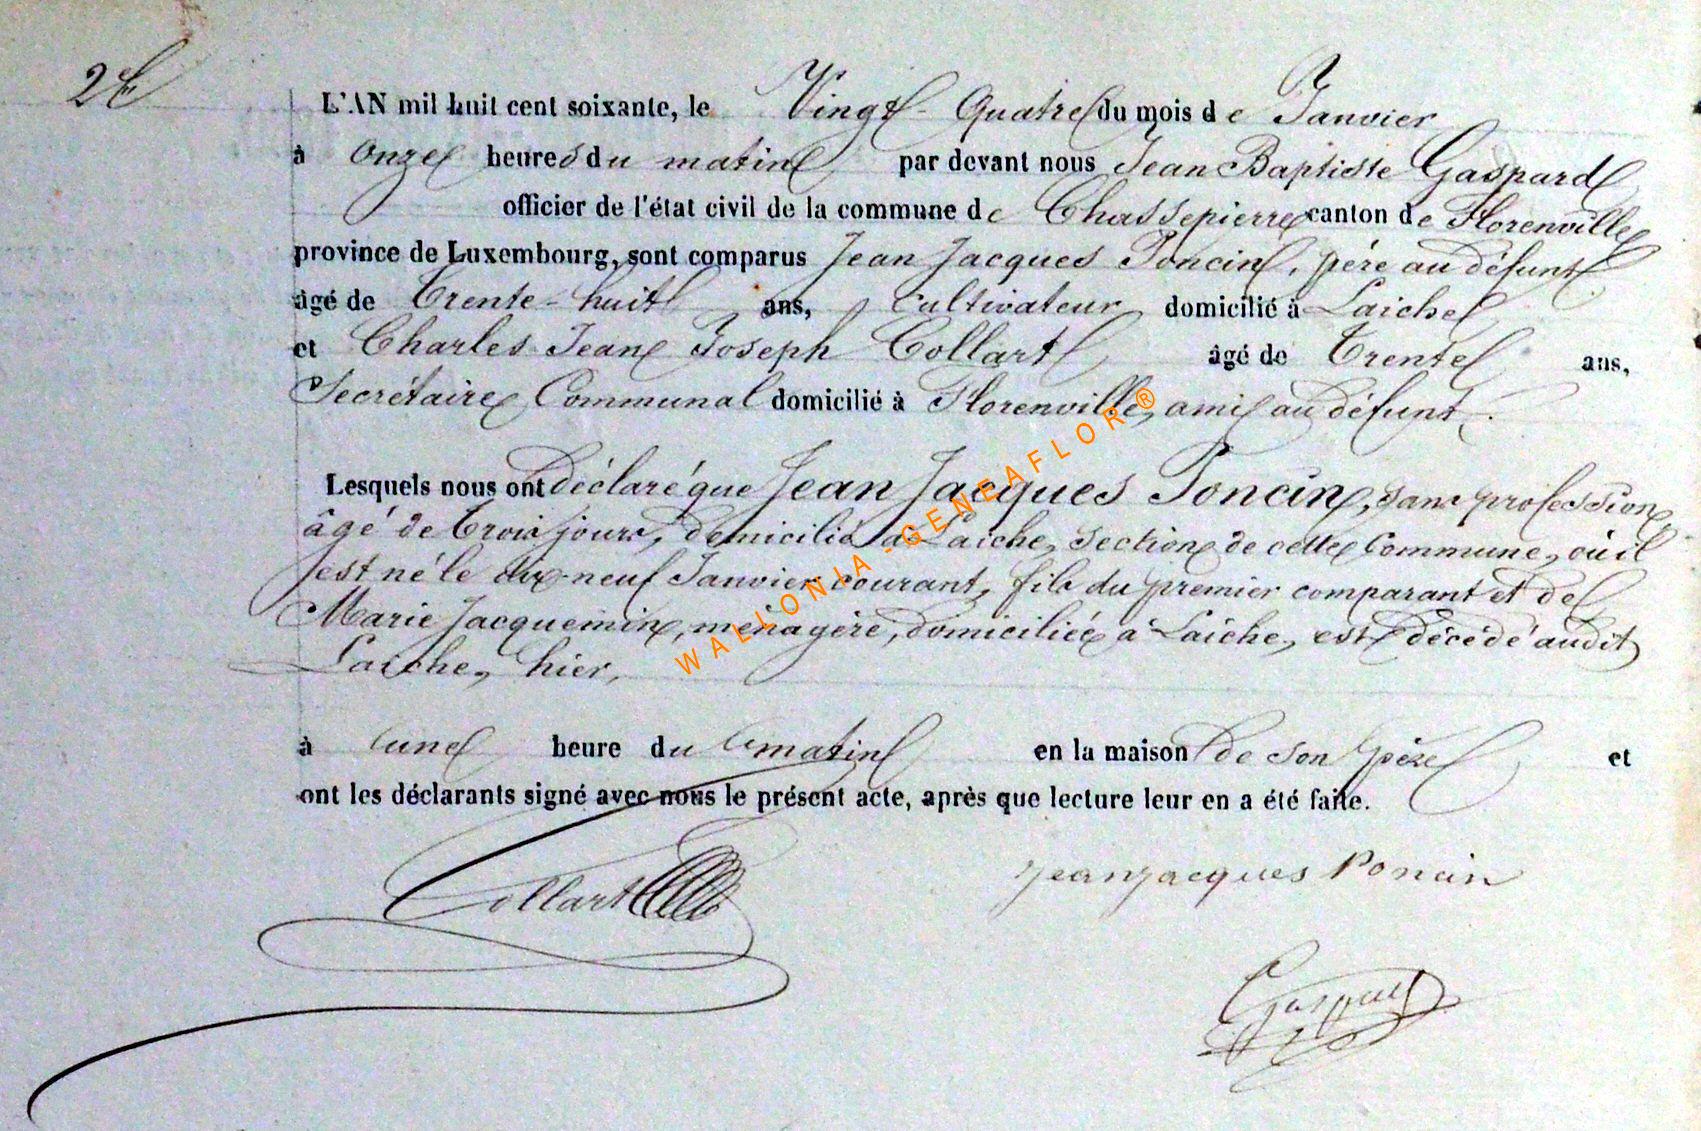 2e
L'AN mil huit cent soixante, le Vingt-Quatre du mois de Janvier
à onze heures du matin par devant nous Jean Baptiste Gaspard
officier de l'état civil de la commune de Chassepierre canton de Florenville
province de Luxembourg, sont comparus Jean Jacques Poncin, père au défunt
âgé de Trente-huit ans, cultivateur domicilié à Laiche
et Charles Jean Joseph Collart âgé de Trente ans,
Secrétaire Communal domicilié à Florenville, ami au défunt.
Lesquels nous ont déclaré que Jean Jacques Poncin, sans profession,
âgé de trois jours, domicilié à Laiche, section de cette Commune, où il
est né le dix-neuf Janvier courant, fils du premier comparant et de
Marie Jacquemin, ménagère, domiciliée à Laiche, est décédé audit
Laiche, hier,
à une heure du matin en la maison de son père et
ont les déclarants signé avec nous le présent acte, après que lecture leur en a été faite.
Collart
jeanjacques Poncin
Gaspard
WALLONIA-GENEAFLOR®